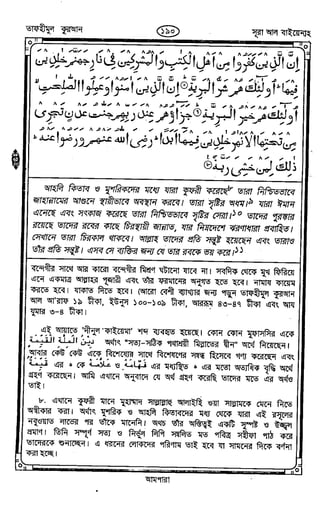 তাফহীমুল কুরআন
১৯০
সূরা আল বাইয়েনাহ
إِنَّ الَّذِينَ كَفَرُوا مِنْ أَهْلِ الْكِتٰبِ وَالْمُشْرِكِينَ فِي نَارِ جَهَنَّمَ خٰلِدِينَ
فِيهَا ۚ أُولٰئِكَ هُمْ شَرُّ الْبَرِيَّةِ ۝ إِنَّ الَّذِينَ آمَنُوا وَعَمِلُوا الصّٰلِحٰتِ ۙ
أُولٰئِكَ هُمْ خَيْرُ الْبَرِيَّةِ ۝ جَزَاؤُهُمْ عِنْدَ رَبِّهِمْ جَنّٰتُ عَدْنٍ تَجْرِي
مِنْ تَحْتِهَا الْأَنْهٰرُ خٰلِدِينَ فِيهَا أَبَدًا ۚ رَضِيَ اللّٰهُ عَنْهُمْ وَرَضُوا عَنْهُ ۚ
ذٰلِكَ لِمَنْ خَشِيَ رَبَّهُ ۝
আহলি কিতাব ও মুশরিকদের মধ্যে যারা কুফরী করেছে৮ তারা নিশ্চিতভাবে
জাহান্নামের আগুনে স্থায়ীভাবে অবস্থান করবে। তারা সৃষ্টির অধম।৯ যারা ঈমান
এনেছে এবং সৎকাজ করেছে তারা নিশ্চিতভাবে সৃষ্টির সেরা।১০ তাদের পুরস্কার
রয়েছে তাদের রবের কাছে চিরস্থায়ী জান্নাত, যার নিম্নদেশে ঝরণাধারা প্রবাহিত।
সেখানে তারা চিরকাল থাকবে। আল্লাহ তাদের প্রতি সন্তুষ্ট হয়েছেন এবং তারাও
তাঁর প্রতি সন্তুষ্ট। এসব সে ব্যক্তির জন্য যে তার রবকে ভয় করে।১১
বন্দেগীর সাথে আর কারো বন্দেগীর মিশ্রণ ঘটানো যাবে না। সবদিক থেকে মুখ ফিরিয়ে
এনে একমাত্র আল্লাহর পূজারী এবং তাঁর ফরমানের অনুগত হতে হবে। নামায কায়েম
করতে হবে। যাকাত দিতে হবে। (আরো বেশী ব্যাখ্যার জন্য পড়ুন তাফহীমুল কুরআন
আল আ'রাফ ১৯ টীকা, ইউনুস ১০৮-১০৯ টীকা, আররূম ৪৩-৪৭ টীকা এবং আয
যুমার ৩-৪ টীকা।
এই আয়াতে 'দীনুল কাইয়েমা' শব্দ ব্যবহৃত হয়েছে। কোন কোন মুফাসসির একে
دين الملة القيمة অর্থাৎ "সত্য-সঠিক পথাশ্রয়ী মিল্লাতের দীন" অর্থে নিয়েছেন।
আবার কেউ কেউ একে বিশেষ্যের সাথে বিশেষণের সম্বন্ধ হিসেবে গণ্য করেছেন এবং
قيمة এর ه কে علامة ও فهامة এর মধ্যস্থিত ه এর মতো আধিক্য বৃদ্ধি অর্থে
গ্রহণ করেছেন। আমি এখানে অনুবাদে যে অর্থ গ্রহণ করেছি তাদের মতে এর অর্থও
তাই।
৮. এখানে কুফরী মানে মুহাম্মাদ সাল্লাল্লাহু আলাইহি ওয়া সাল্লামকে মেনে নিতে
অস্বীকার করা। অর্থাৎ মুশরিক ও আহলি কিতাবদের মধ্য থেকে যারা এই রসূলের
নবুওয়াত লাভের পর তাঁকে মানেনি। অথচ তাঁর অস্তিত্বই একটি সুস্পষ্ট ও উজ্জ্বল
প্রমাণ। তিনি সম্পূর্ণ সত্য ও নির্ভুল লিপি সম্বলিত মত পবিত্র সহীফা পাঠ করে
তাদেরকে শুনাচ্ছেন। এ ধরনের লোকদের পরিণাম তাই হবে যা সামনের দিকে বর্ণনা
করা হচ্ছে।
আমপারা